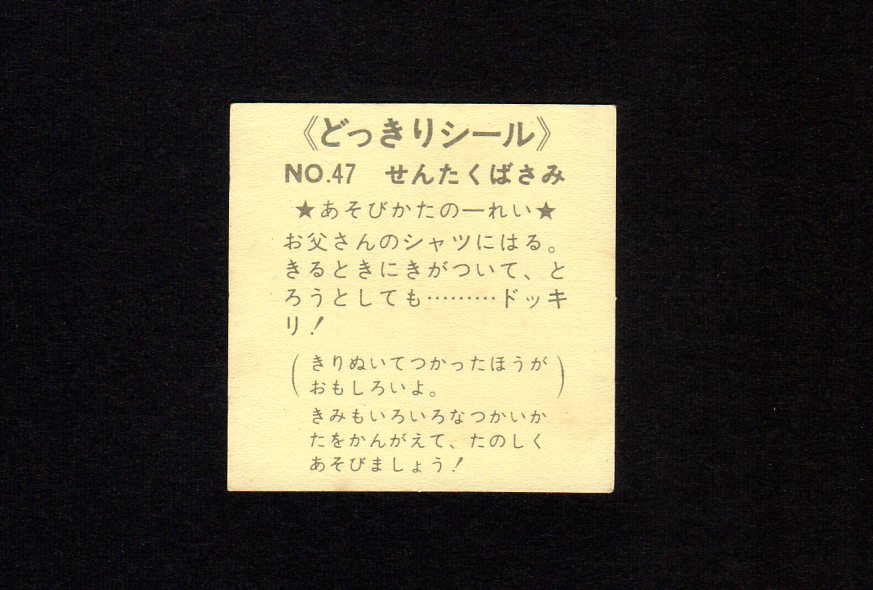 《どっきりシール》
NO.47　せんたくばさみ
★あそびかたの一れい★
お父さんのシャツにはる。
きるときにきがついて、と
ろうとしても………ドッキ
リ！
（きりぬいてつかったほうが
おもしろいよ。）
きみもいろいろなつかいか
たをかんがえて、たのしく
あそびましょう！